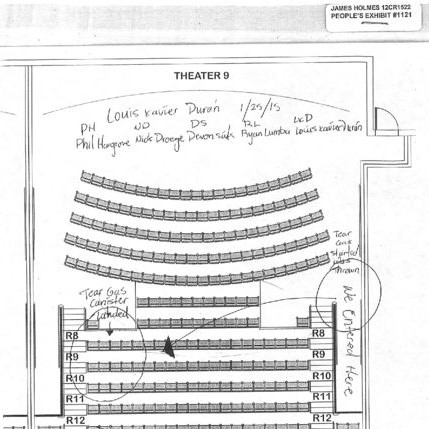 JAMES HOLMES 12CR1522
PEOPLE'S EXHIBIT #1121
THEATER 9
Louis Xavier Durán 1/25/15
PH ND DS RL LXD
Phil Hargrove Nick Droege Devon Suk Ryan Lumba Louis Xavier Durán
Tear
Gas
started
was
thrown
Tear Gas
Canister
Landed
We Entered Here
R8 R8
R9 R9
R10 R10
R11 R11
R12 R12